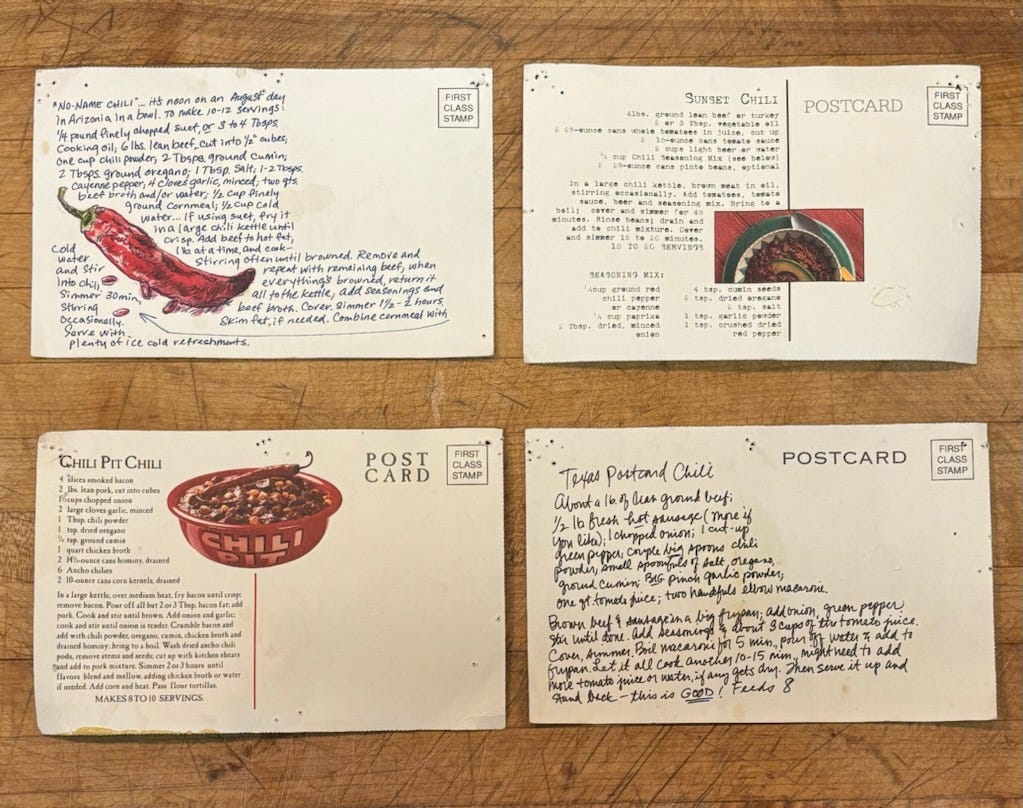 "NO-NAME CHILI"... it's noon on an August day
in Arizonia in a bowl. To make 10-12 servings:
1/4 pound finely chopped suet, or 3 to 4 Tbsps.
Cooking oil; 6 lbs. lean beef, cut into 1/2" cubes,
one cup chili powder, 2 Tbsps. ground cumin;
2 Tbsps. ground oregano; 1 Tbsp. salt, 1-2 Tbsps.
cayenne pepper, 4 cloves garlic, minced; two qts.
beef broth and/or water; 1/2 cup finely
ground cornmeal; 1/2 cup cold
water... If using suet, fry it
in a large chili kettle until
crisp. Add beef to hot fat,
1 lb. at a time, and cook—
Stirring often until browned. Remove and
repeat with remaining beef, when
everything's browned, return it
all to the kettle, add seasonings and
beef broth. Cover. Simmer 1 1/2 - 2 hours.
Skim fat, if needed. Combine cornmeal with
Cold
water
and stir
into chili.
Simmer 30 min,
stirring
occasionally.
Serve with
plenty of ice cold refreshments.
FIRST
CLASS
STAMP
SUNSET CHILI
4lbs. ground lean beef or turkey
2 or 3 Tbsp. vegetable oil
2 28-ounce cans whole tomatoes in juice, cut up
2 15-ounce cans tomato sauce
2 cups light beer or water
1/4 cup Chili Seasoning Mix (see below)
2 28-ounce cans pinto beans, optional
In a large chili kettle, brown meat in oil,
stirring occasionally. Add tomatoes, tomato
sauce, beer and seasoning mix. Bring to a
boil; cover and simmer for 45
minutes. Rinse beans; drain and
add to chili mixture. Cover
and simmer 15 to 20 minutes.
15 TO 20 SERVINGS
SEASONING MIX:
1/4 cup ground red
chili pepper
or cayenne
1/4 cup paprika
2 Tbsp. dried, minced
onion
4 tsp. cumin seeds
2 tsp. dried oregano
2 tsp. salt
1 tsp. garlic powder
1 tsp. crushed dried
red pepper
POSTCARD
FIRST
CLASS
STAMP
CHILI PIT CHILI
4 slices smoked bacon
2 lbs. lean pork, cut into cubes
1 1/2 cups chopped onion
2 large cloves garlic, minced
1 Tbsp. chili powder
1 tsp. dried oregano
1/2 tsp. ground cumin
1 quart chicken broth
2 14 1/2-ounce cans hominy, drained
6 Ancho chilies
2 10-ounce cans corn kernels, drained
In a large kettle, over medium heat, fry bacon until crisp;
remove bacon. Pour off all but 2 or 3 Tbsp. bacon fat; add
pork. Cook and stir until brown. Add onion and garlic;
cook and stir until onion is tender. Crumble bacon and
add with chili powder, oregano, cumin, chicken broth and
drained hominy; bring to a boil. Wash dried ancho chili
pods, remove stems and seeds; cut up with kitchen shears
and add to pork mixture. Simmer 2 or 3 hours until
flavors blend and mellow, adding chicken broth or water
if needed. Add corn and heat. Pass flour tortillas.
MAKES 8 TO 10 SERVINGS.
CHILI
PIT
POST
CARD
FIRST
CLASS
STAMP
POSTCARD
FIRST
CLASS
STAMP
Texas Postcard Chili
About a lb. of lean ground beef;
1/2 lb fresh hot sausage (more if
you like); 1 chopped onion; 1 cut-up
green pepper; couple big spoons chili
powder; small spoonfuls of salt, oregano,
ground cumin; BIG pinch garlic powder;
one qt. tomato juice; two handfuls elbow macaroni.
Brown beef & sausage in a big frypan; add onion, green pepper.
Stir until done. Add seasonings & about 3 cups of the tomato juice.
Cover, simmer. Boil macaroni for 5 min., pour off water & add to
frypan. Let it all cook another 10-15 min., might need to add
more tomato juice or water, if any gets dry. Then serve it up and
stand back — this is GOOD! Feeds 8